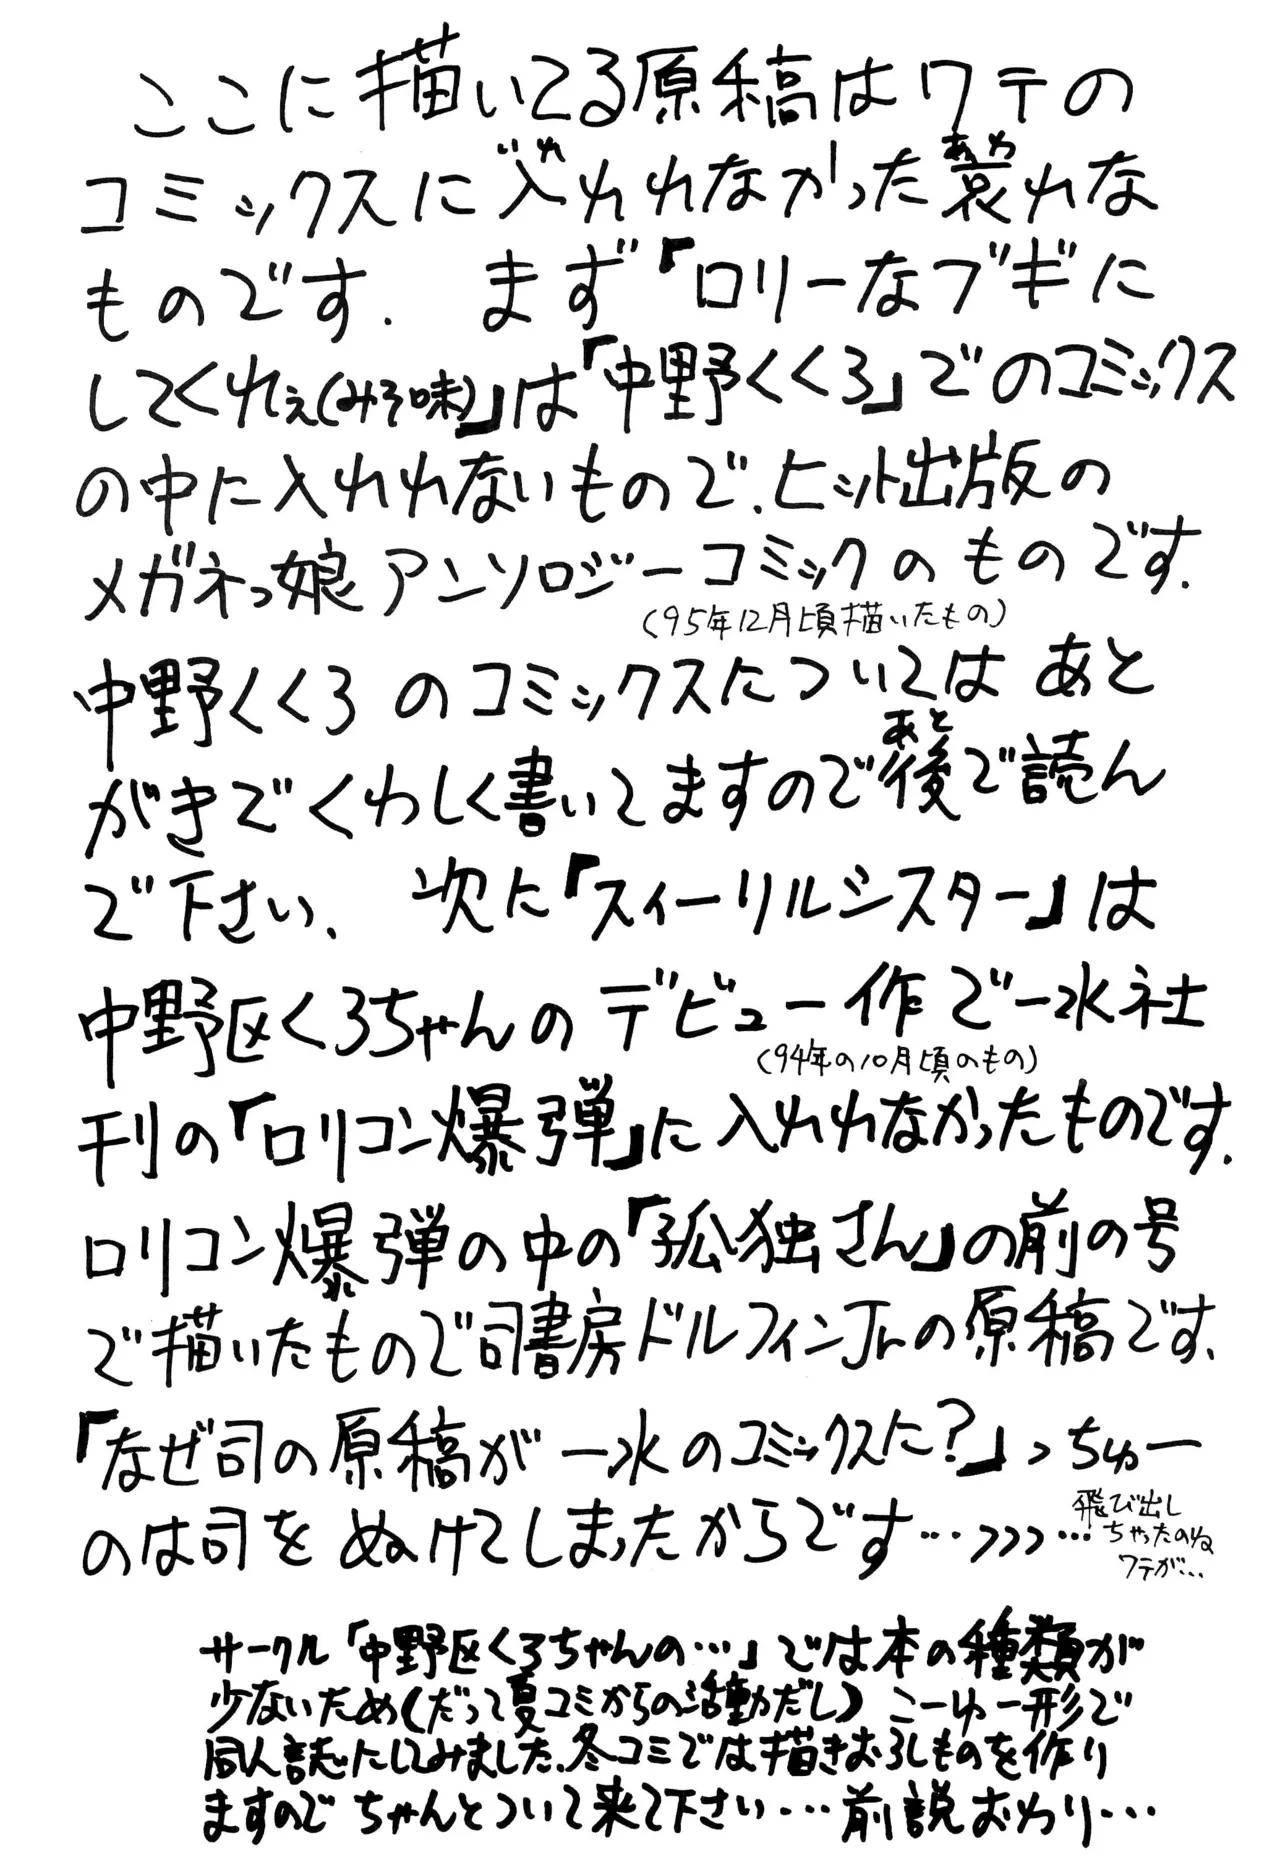 ここに描いてる原稿はワテの
コミックスに入れれなかった哀れな
ものです. まず「ロリーなブギに
してくれぇ(みそ味)」は「中野くくろ」でのコミックス
の中に入れれないもので、ヒット出版の
メガネっ娘アンソロジーコミックのものです.
(95年12月頃描いたもの)
中野くくろのコミックスについてはあと
がきでくわしく書いてますので後で読ん
で下さい. 次に「スィーリルシスター」は
中野区くろちゃんのデビュー作で一水社
(94年の10月頃のもの)
刊の「ロリコン爆弾」に入れれなかったものです.
ロリコン爆弾の中の「孤独さん」の前の号
で描いたもので司書房ドルフィンJrの原稿です、
「なぜ司の原稿が一水のコミックスに?」っちゅー
のは司をぬけてしまったからです…>>>…
飛び出し
ちゃったのね
ワテが…
サークル「中野区くろちゃんの…」では本の種類が
少ないため(だって夏コミからの活動だし)こーゆー形で
同人誌にしてみました.冬コミでは描きおろしものを作り
ますのでちゃんとついて来て下さい…前説おわり…